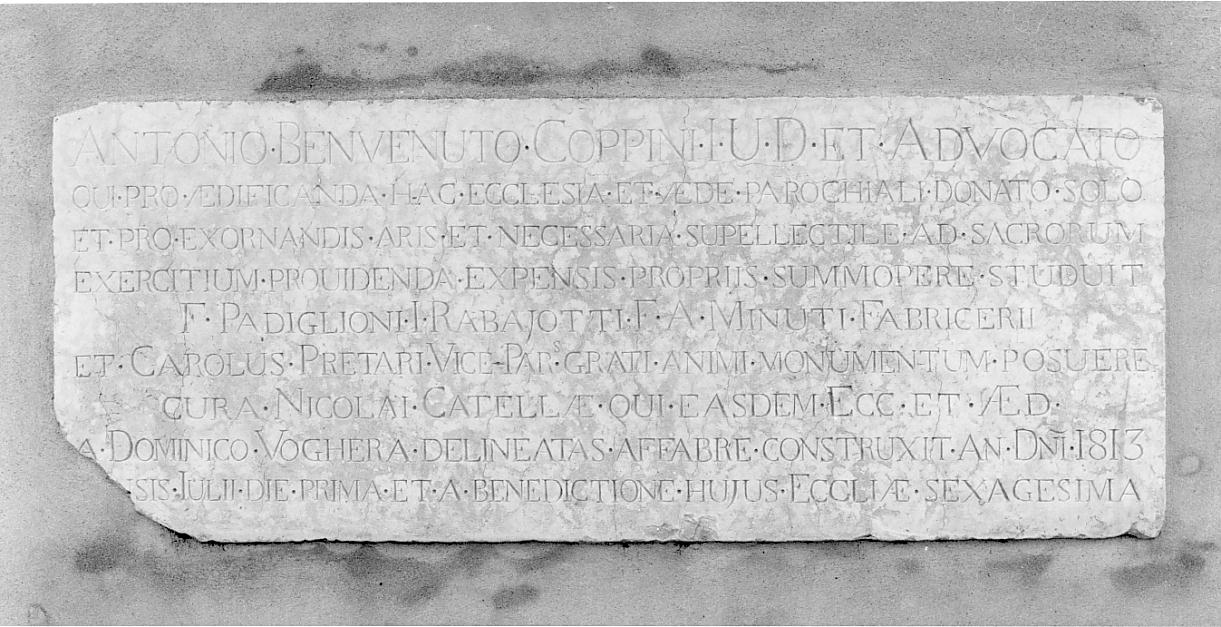 ANTONIO·BENVENUTO·COPPINI·I·U·D·ET·ADVOCATO
QUI·PRO·ÆDIFICANDA·HAC·ECCLESIA·ET·ÆDE·PAROCHIALI·DONATO·SOLO
ET·PRO·EXORNANDIS·ARIS·ET·NECESSARIA·SUPELLECTILE·AD·SACRORUM
EXERCITIUM·PROUIDENDA·EXPENSIS·PROPRIIS·SUMMOPERE·STUDUIT
F·PADIGLIONI·I·RABAJOTTI·F·A·MINUTI·FABRICERII
ET·CAROLUS·PRETARI·VICE-PARˢ·GRATI·ANIMI·MONUMENTUM·POSUERE
CURA·NICOLAI·CATELLÆ·QUI·EASDEM·ECC·ET·ÆD·
A·DOMINICO·VOGHERA·DELINEATAS·AFFABRE·CONSTRUXIT·AN·DÑI·1813
SIS·IULII·DIE·PRIMA·ET·A·BENEDICTIONE·HUJUS·ECCLIÆ·SEXAGESIMA